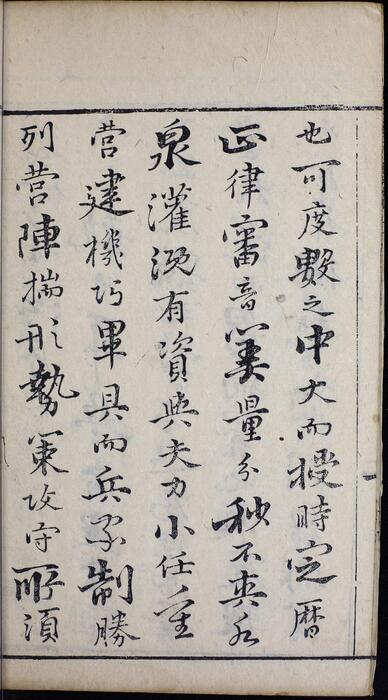 也可度數之中大而授時定曆
正律審音筭量分秒不爽水
泉灌溉有資與夫力小任重
營建機巧畢具而兵家制勝
列營陣揣形勢策攻守所須